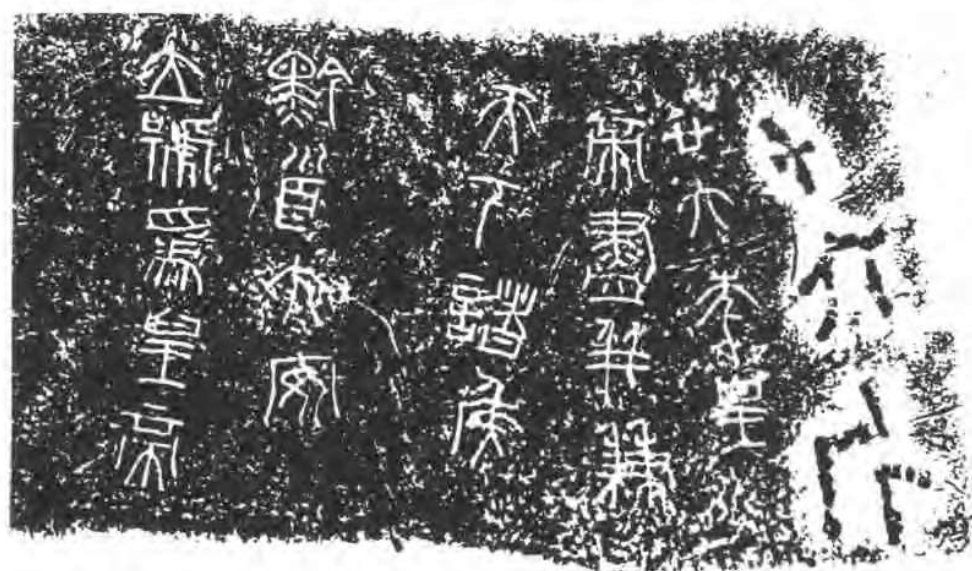 十六斤
廿六年皇
帝盡并兼
天下諸侯
黔首大安
立號為皇帝